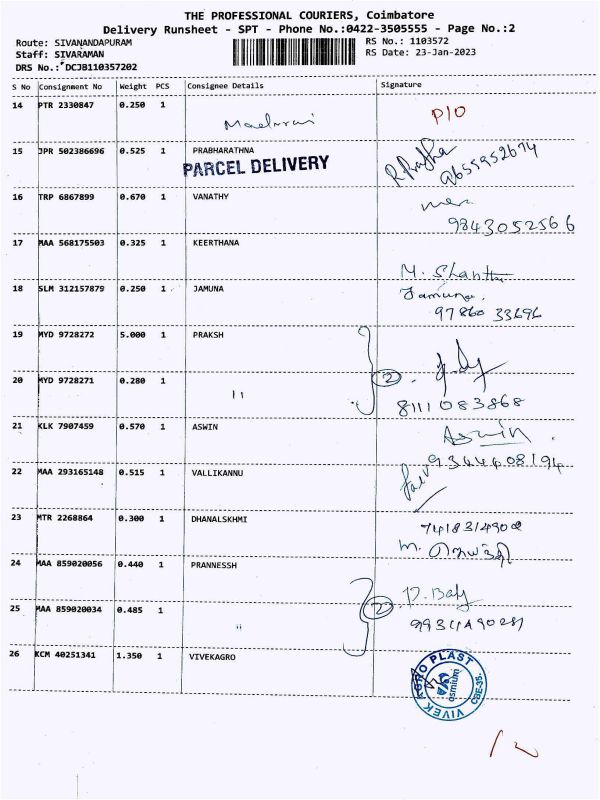 THE PROFESSIONAL COURIERS, Coimbatore
Delivery Runsheet - SPT - Phone No.:0422-3505555 - Page No.:2
Route: SIVANANDAPURAM
Staff: SIVARAMAN
DRS No.: DCJB110357202
RS No.: 1103572
RS Date: 23-Jan-2023
S No Consignment No Weight PCS Consignee Details Signature
14 PTR 2330847 0.250 1
P10
15 JPR 502386696 0.525 1 PRABHARATHNA
PARCEL DELIVERY
16 TRP 6867899 0.670 1 VANATHY
9843052566
17 MAA 568175503 0.325 1 KEERTHANA
M. Shanthi
18 SLM 312157879 0.250 1 JAMUNA Jamuna.
97860 33696
19 MYD 9728272 5.000 1 PRAKSH
20 MYD 9728271 0.280 1 11 2
8111083868
21 KLK 7907459 0.570 1 ASWIN Aswin
9344408194
22 MAA 293165148 0.515 1 VALLIKANNU
23 MTR 2268864 0.300 1 DHANALSKHMI
24 MAA 859020056 0.440 1 PRANNESSH
25 MAA 859020034 0.485 1 " 2
26 KCM 40251341 1.350 1 VIVEKAGRO
VIVEK AGRO PLAST
osmium
CBE-35.